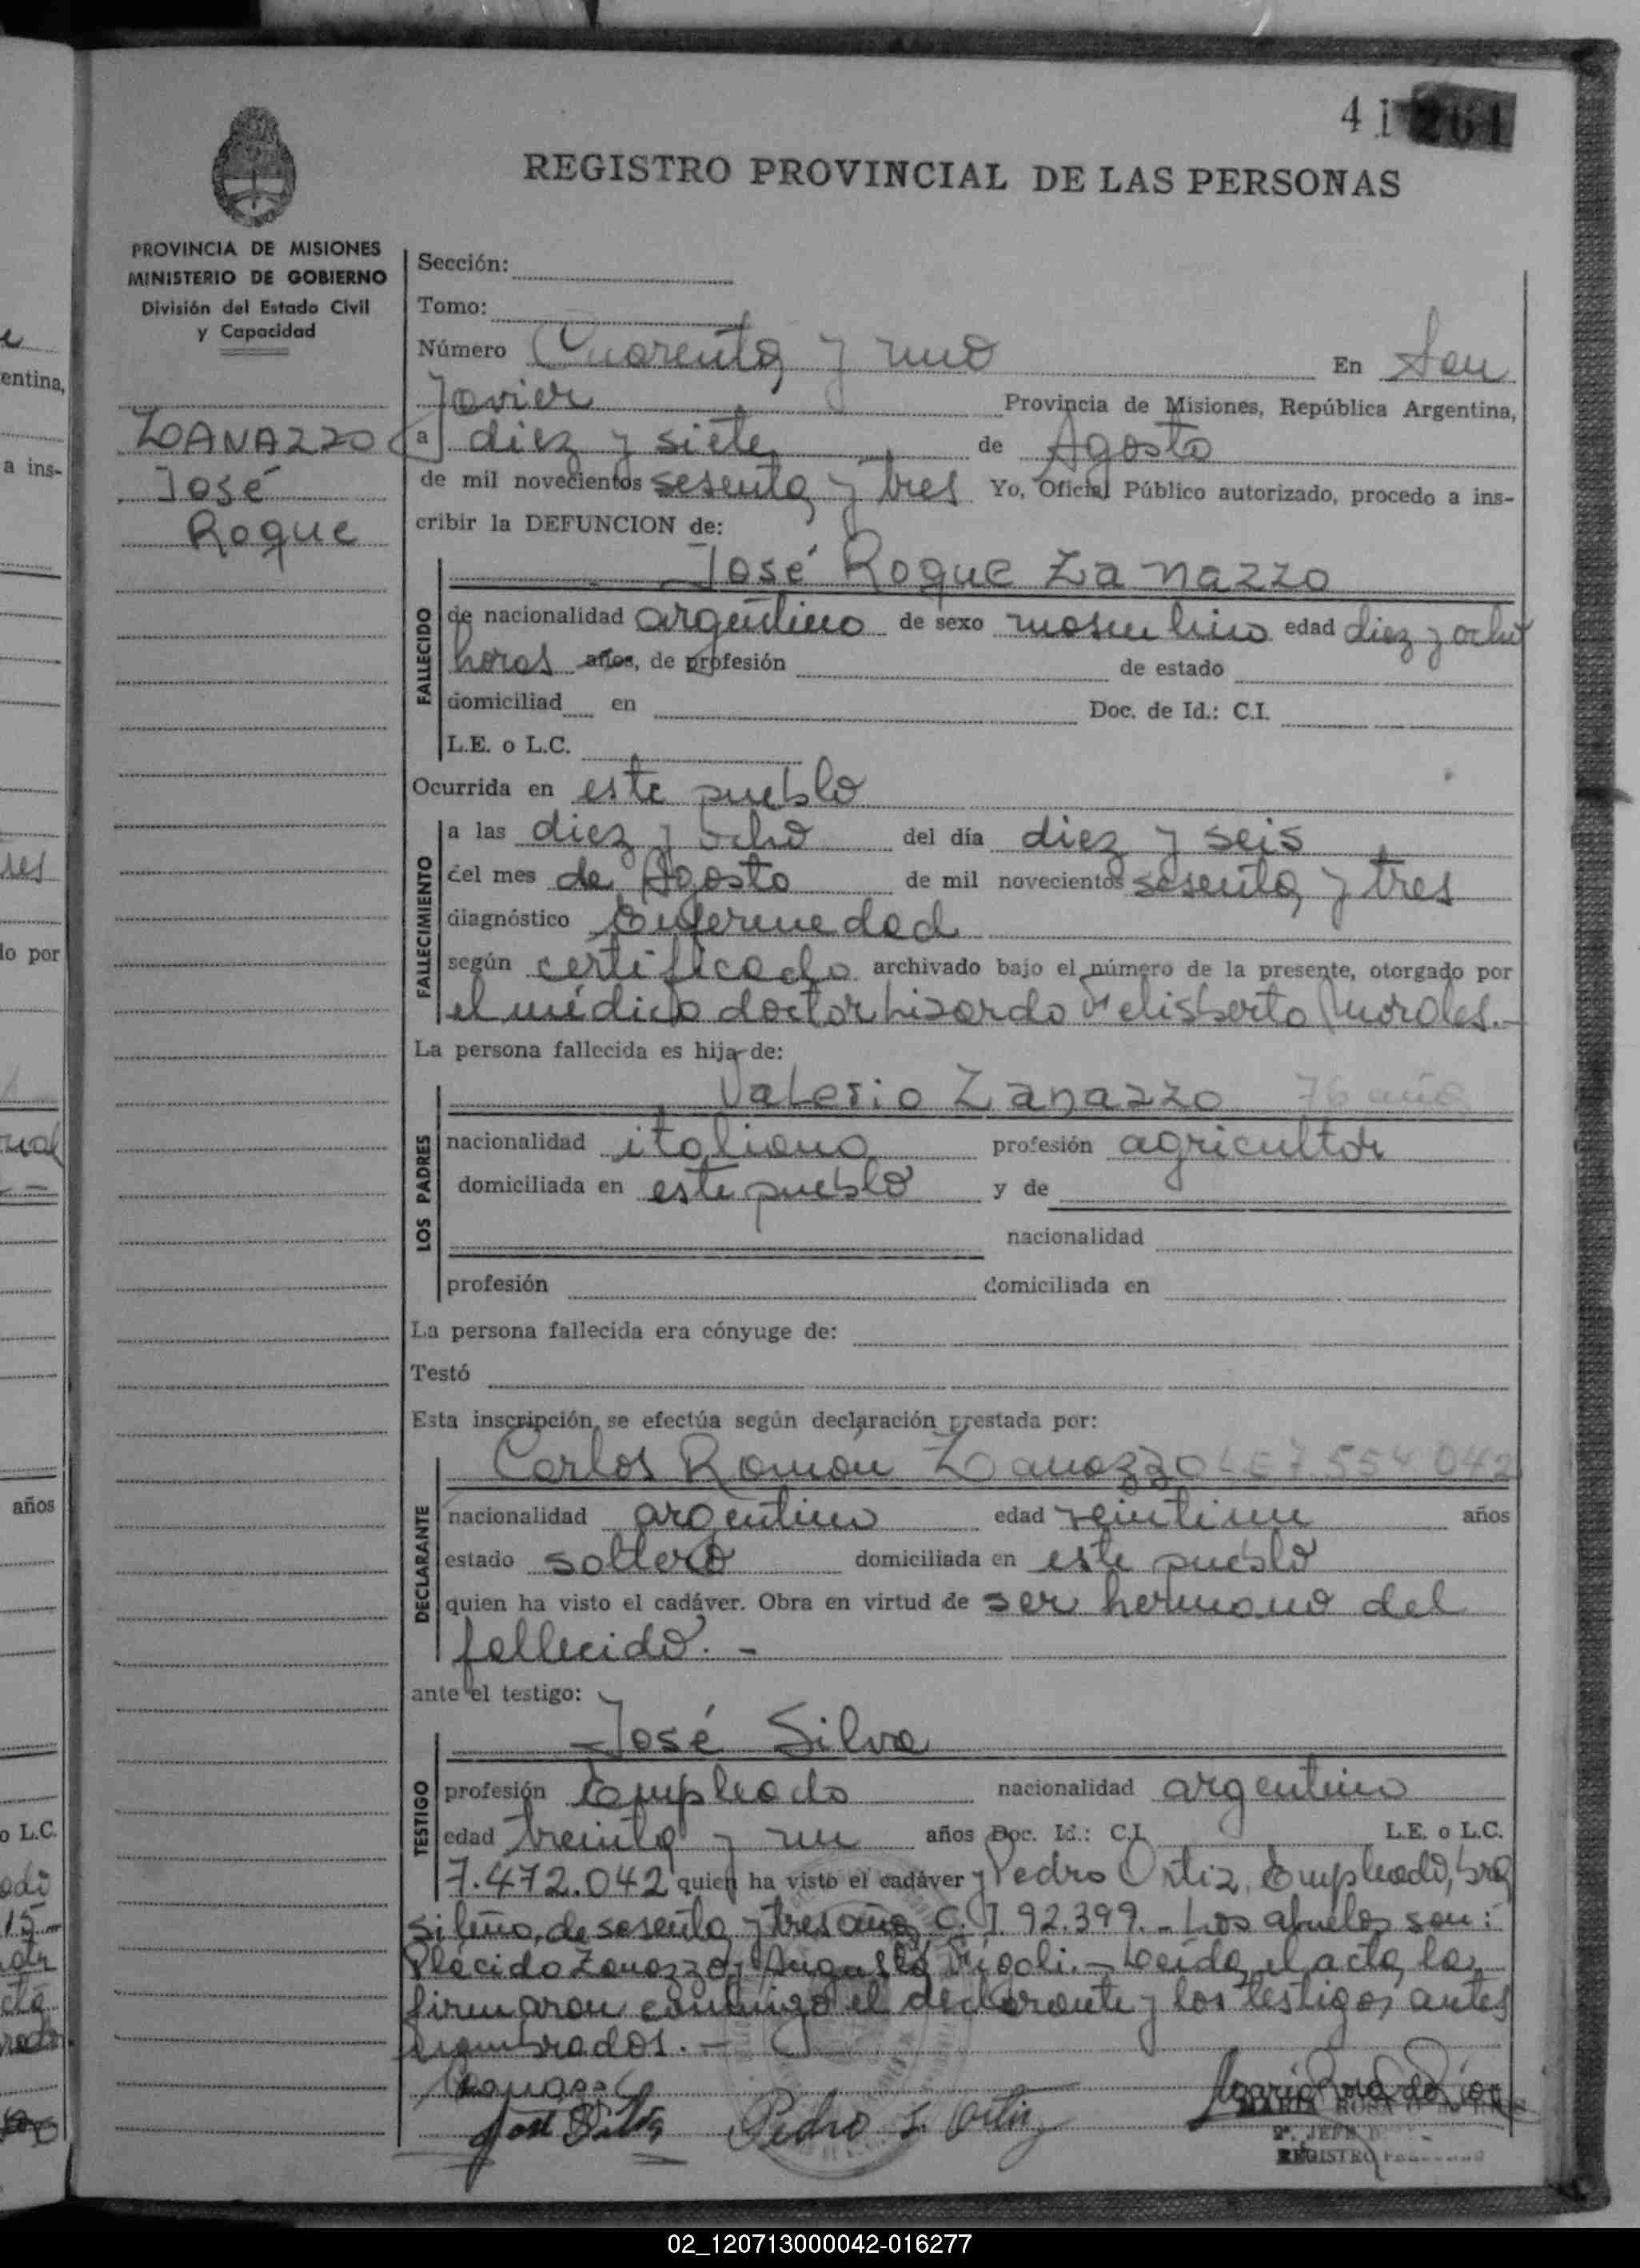 41 261
REGISTRO PROVINCIAL DE LAS PERSONAS
PROVINCIA DE MISIONES
MINISTERIO DE GOBIERNO
División del Estado Civil
y Capacidad
ZANAZZO
José
Roque
Sección:
Tomo:
Número Cuarenta y uno En San
Javier Provincia de Misiones, República Argentina,
a diez y siete de Agosto
de mil novecientos sesenta y tres Yo, Oficial Público autorizado, procedo a ins-
cribir la DEFUNCION de:
José Roque Zanazzo
FALLECIDO
de nacionalidad argentino de sexo masculino edad diez y ocho
horas años, de profesión de estado
domiciliad en Doc. de Id.: C.I.
L.E. o L.C.
Ocurrida en este pueblo
FALLECIMIENTO
a las diez y ocho del día diez y seis
del mes de Agosto de mil novecientos sesenta y tres
diagnóstico Enfermedad
según certificado archivado bajo el número de la presente, otorgado por
el médico doctor Lisardo Felisberto Morales.-
La persona fallecida es hija de:
LOS PADRES
Valerio Zanazzo 76 años
nacionalidad italiana profesión agricultor
domiciliada en este pueblo y de
nacionalidad
profesión domiciliada en
La persona fallecida era cónyuge de:
Testó
Esta inscripción se efectúa según declaración prestada por:
DECLARANTE
Carlos Román Zanazzo LE 7.554.042
nacionalidad argentino edad veintiun años
estado soltero domiciliada en este pueblo
quien ha visto el cadáver. Obra en virtud de ser hermano del
fallecido. -
ante el testigo:
TESTIGO
José Silva
profesión Empleado nacionalidad argentino
edad treinta y un años Doc. Id.: C.I. L.E. o L.C.
7.472.042 quien ha visto el cadáver y Pedro Ortiz, Empleado, bra
sileño, de sesenta y tres años C.I 92.399.- Los abuelos son:
Plácido Zanazzo y Augusta .- Leída el acta, la
firmaron conmigo el declarante y los testigos antes
nombrados. -
José Silva Pedro Ortiz
MARIA ROSA
2º. JEFE
REGISTRO
entina,
a ins-
lo por
años
o L.C.
02_120713000042-016277